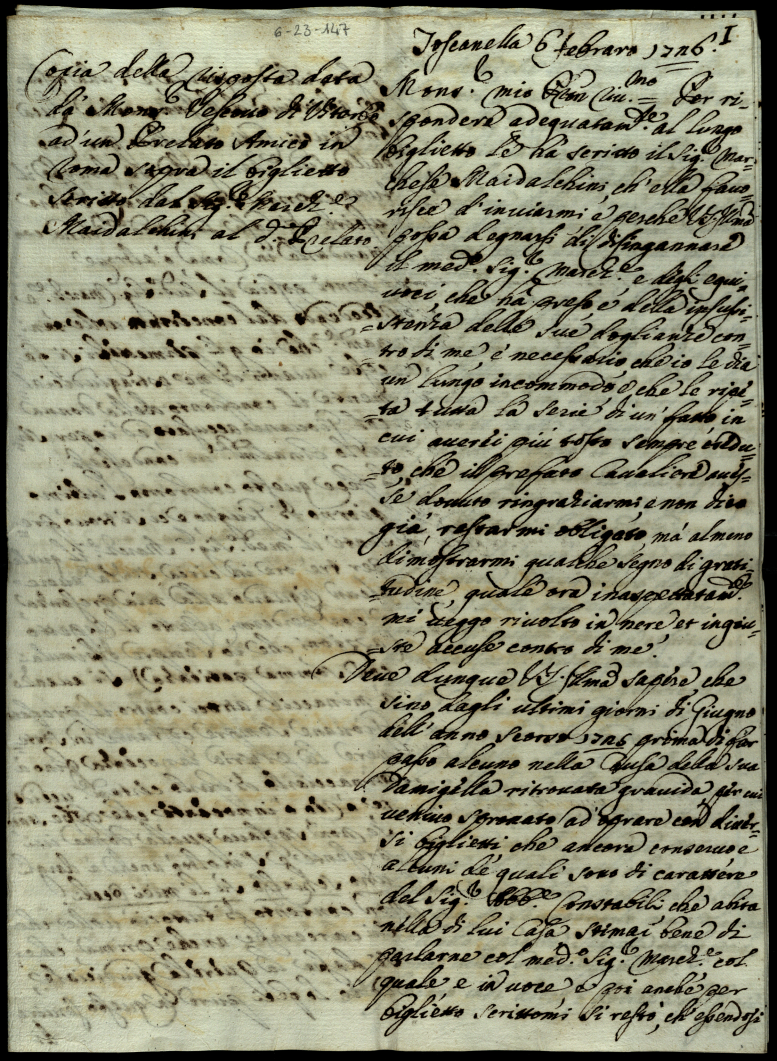 6-23-147
1
Copia della risposta data
da Mons.r Vescovo di Viterbo
ad' un Prelato Amico in
Roma sopra il biglietto
scritto dal Sig.r March.e
Maidalchini al d.o Prelato
Toscanella 6 febraro 1726.
Mons.r mio Per ri-
spondere adequatam.te al lungo
biglietto le hà scritto il Sig.r Mar-
chese Maidalchini, ch' ella favo-
risce d' inviarmi, e perche V.S. Ill.ma
possa degnarsi di disingannare
il med.o Sig.r March.e, e degl' equi-
voci, che hà preso e della insussi-
stenza delle sue doglianze con-
tro di me, è necessario che io le dia
un lungo incommodo, e che le ripe-
ta tutta la serie di un' fatto in
cui averei più tosto sempre credu-
to, che il prefato Cavaliere aves-
se dovuto ringraziarmi, e non dico
già restarmi obligato mà almeno
dimostrarmi qualche segno di grati-
tudine, quale ora inaspettatam.te
mi veggo rivolto in nere et ingiu-
ste accuse contro di me.
Deve dunque V.S. Ill.ma sapere che
sino dagli ultimi giorni di Giugno
dell' anno scorso 1725 prima di far
passo alcuno nella Causa della sua
Damigella ritrovata gravida, per cui
venivo spronato ad' oprare con diver-
si biglietti che ancora conservo e
alcuni de quali sono di carattere
del Sig.r Abb.e Constabili che abita
nella di lui Casa stimai bene di
parlarne col med.o Sig.r March.e col
quale e in voce e poi anche per
biglietto scrittomi si restò, ch' essendosi